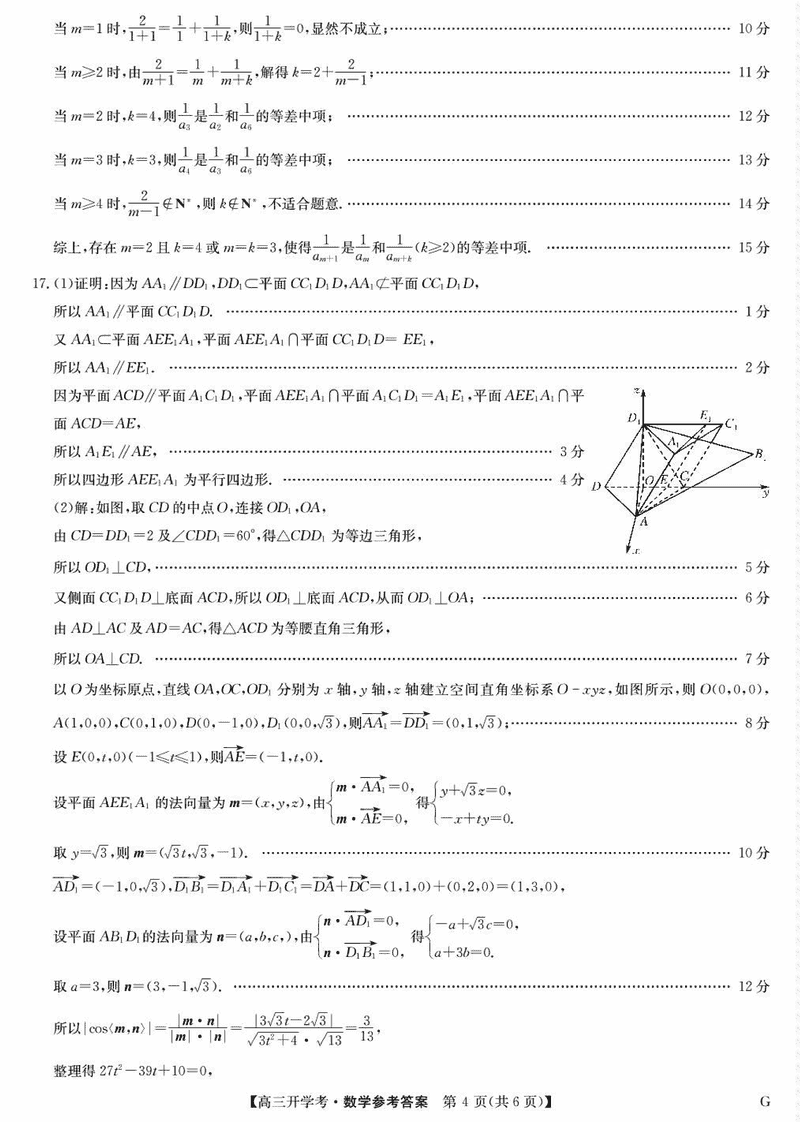 当m=1时,2/(1+1)=1/1+1/(1+k),则1/(1+k)=0,显然不成立;…… 10分
当m≥2时,由2/(m+1)=1/m+1/(m+k),解得k=2+2/(m-1);…… 11分
当m=2时,k=4,则1/a₃是1/a₂和1/a₆的等差中项; …… 12分
当m=3时,k=3,则1/a₄是1/a₃和1/a₆的等差中项; …… 13分
当m≥4时,2/(m-1)∉N*,则k∉N*,不适合题意.…… 14分
综上,存在m=2且k=4或m=k=3,使得1/aₘ₊₁是1/aₘ和1/aₘ₊ₖ(k≥2)的等差中项. …… 15分
17.(1)证明:因为AA₁∥DD₁,DD₁⊂平面CC₁D₁D,AA₁⊄平面CC₁D₁D,
所以AA₁∥平面CC₁D₁D. …… 1分
又AA₁⊂平面AEE₁A₁,平面AEE₁A₁∩平面CC₁D₁D= EE₁,
所以AA₁∥EE₁. …… 2分
因为平面ACD∥平面A₁C₁D₁,平面AEE₁A₁∩平面A₁C₁D₁=A₁E₁,平面AEE₁A₁∩平
面ACD=AE,
所以A₁E₁∥AE, …… 3分
所以四边形AEE₁A₁为平行四边形. …… 4分
z
D₁ E₁ C₁
A₁ B₁
D O E C y
A
x
(2)解:如图,取CD的中点O,连接OD₁,OA,
由CD=DD₁=2及∠CDD₁=60°,得△CDD₁为等边三角形,
所以OD₁⊥CD,…… 5分
又侧面CC₁D₁D⊥底面ACD,所以OD₁⊥底面ACD,从而OD₁⊥OA; …… 6分
由AD⊥AC及AD=AC,得△ACD为等腰直角三角形,
所以OA⊥CD. …… 7分
以O为坐标原点,直线OA,OC,OD₁分别为x轴,y轴,z轴建立空间直角坐标系O-xyz,如图所示,则O(0,0,0),
A(1,0,0),C(0,1,0),D(0,-1,0),D₁(0,0,√3),则AA₁→=DD₁→=(0,1,√3);…… 8分
设E(0,t,0)(-1≤t≤1),则AE→=(-1,t,0).
设平面AEE₁A₁的法向量为m=(x,y,z),由{m·AA₁→=0, m·AE→=0, 得{y+√3z=0, -x+ty=0.
取y=√3,则m=(√3t,√3,-1). …… 10分
AD₁→=(-1,0,√3),D₁B₁→=D₁A₁→+D₁C₁→=DA→+DC→=(1,1,0)+(0,2,0)=(1,3,0),
设平面AB₁D₁的法向量为n=(a,b,c,),由{n·AD₁→=0, n·D₁B₁→=0, 得{-a+√3c=0, a+3b=0.
取a=3,则n=(3,-1,√3). …… 12分
所以|cos⟨m,n⟩|=|m·n|/(|m|·|n|)=|3√3t-2√3|/(√(3t²+4)·√13)=3/13,
整理得27t²-39t+10=0,
【高三开学考·数学参考答案 第4页(共6页)】 G